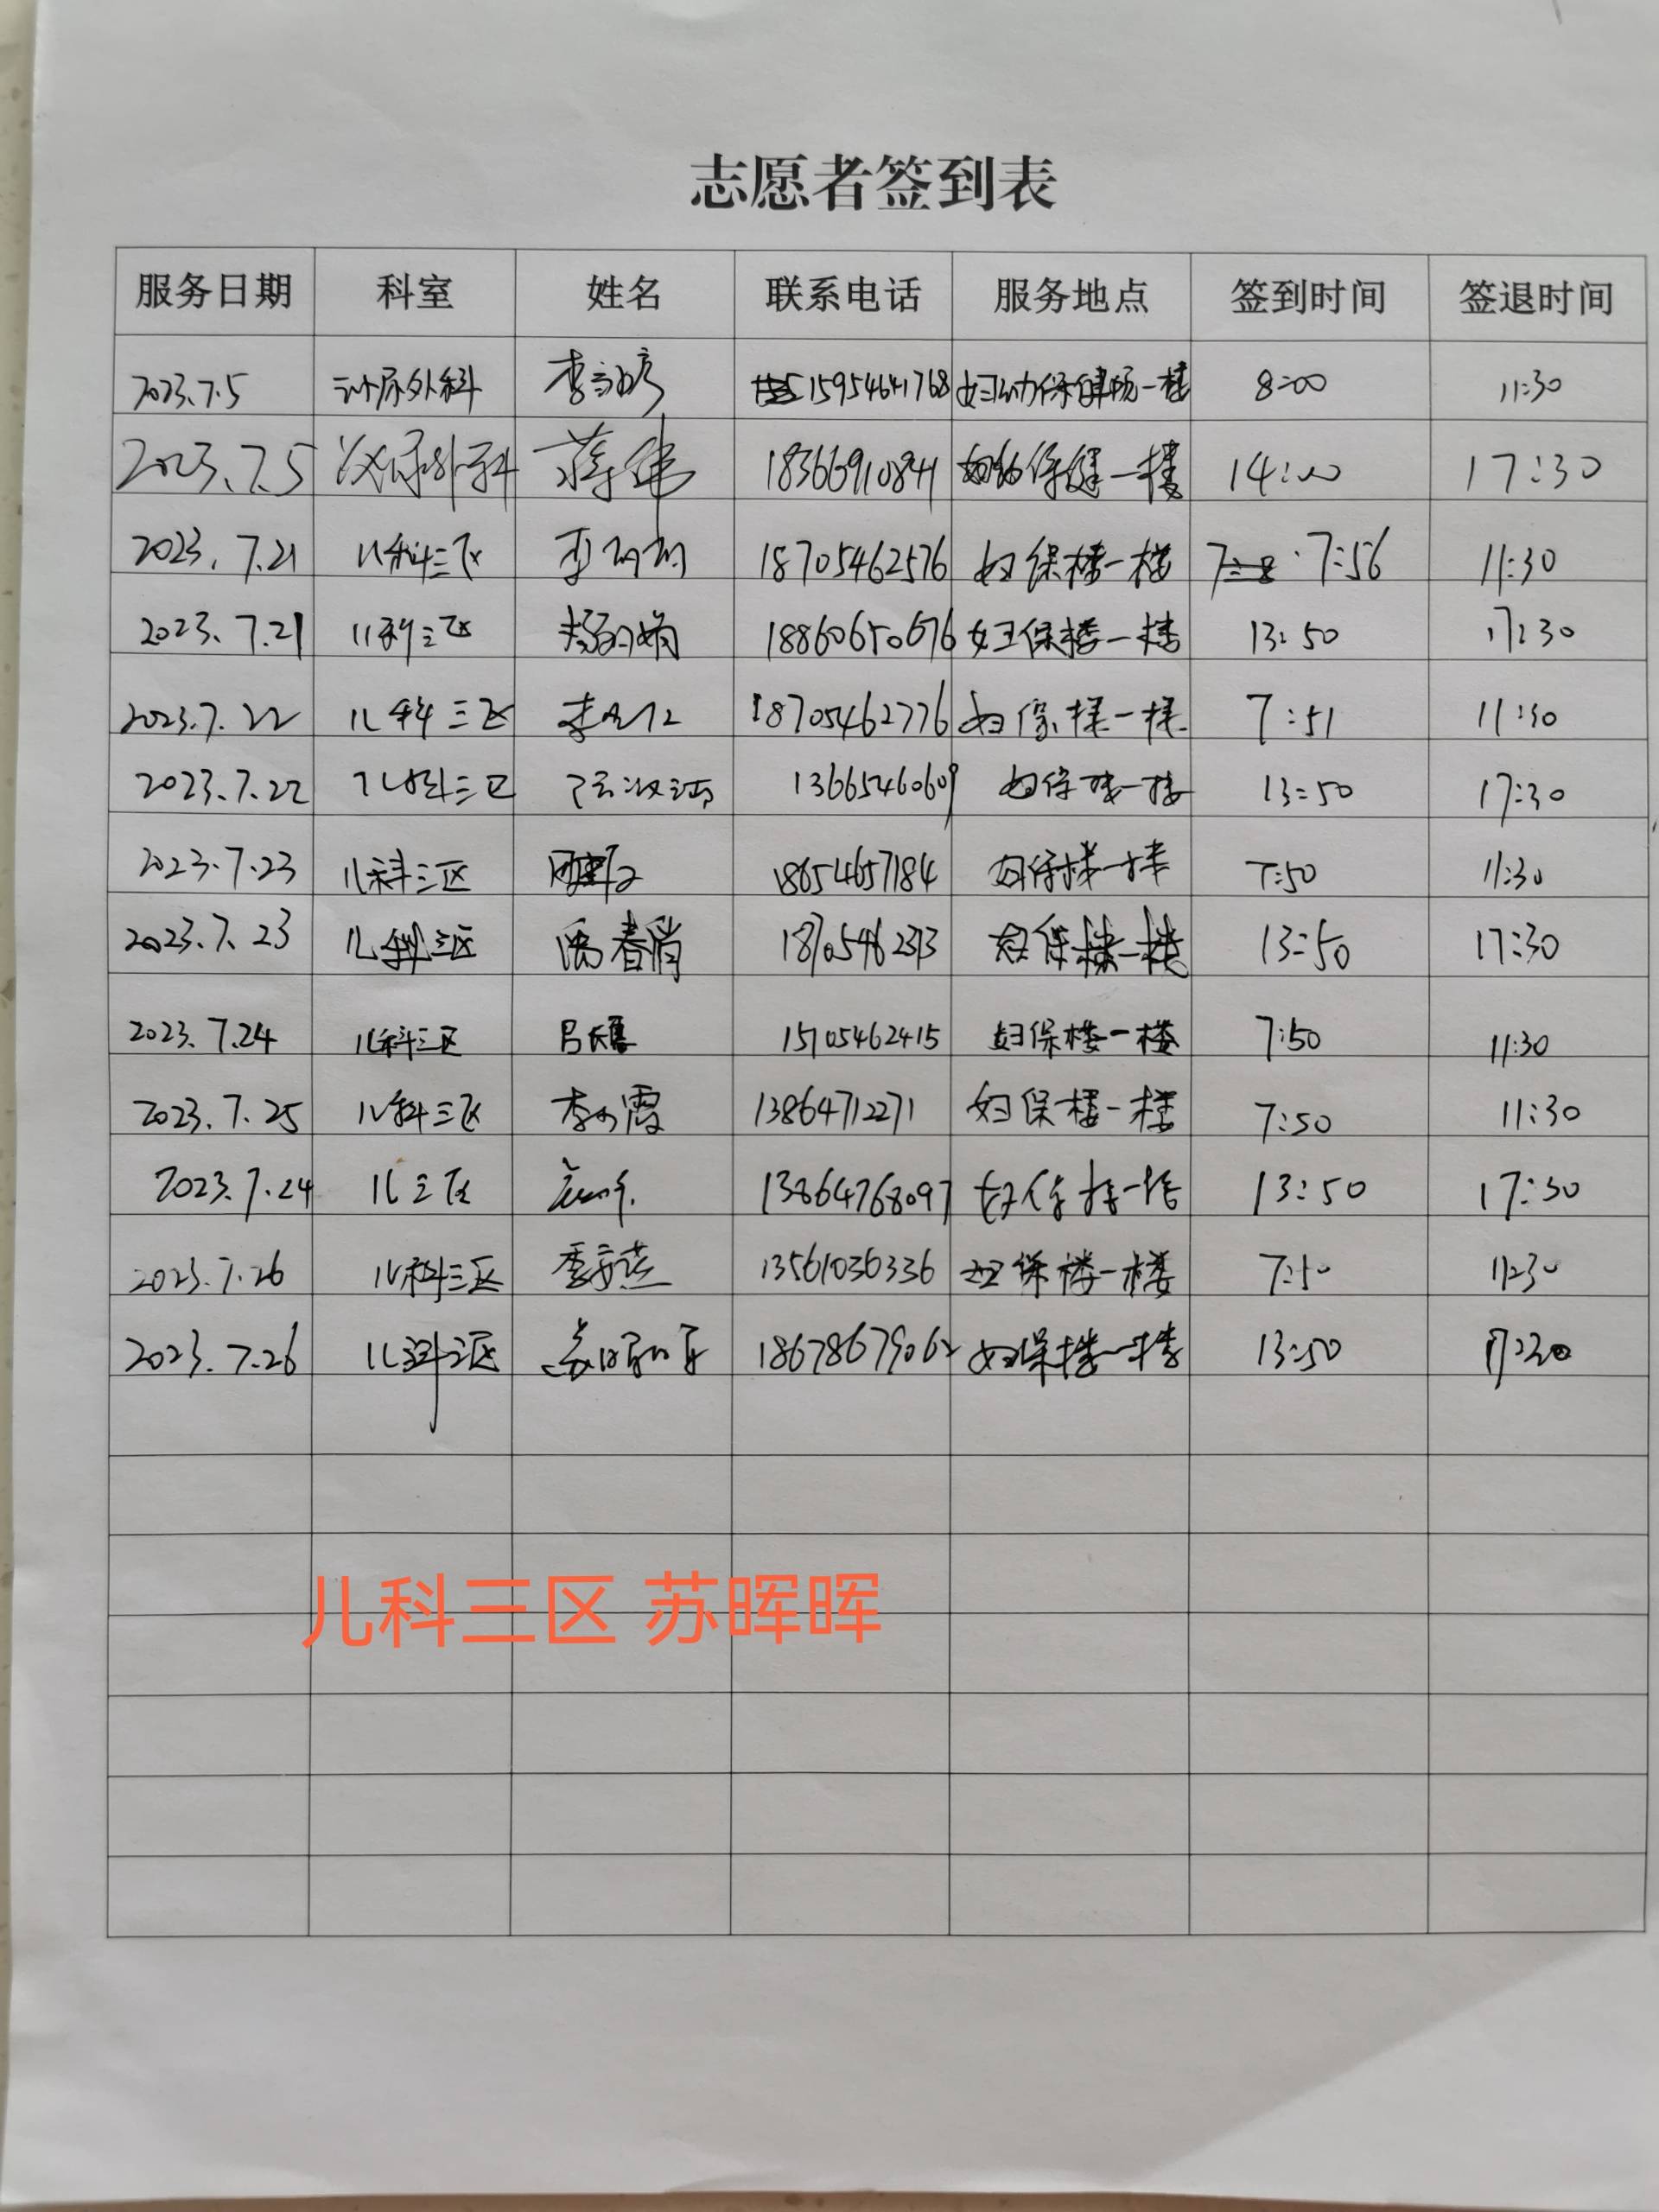 志愿者签到表
服务日期 科室 姓名 联系电话 服务地点 签到时间 签退时间
2023.7.5 泌尿外科 15954641768 一楼 8:00 11:30
2023.7.5 泌尿外科 蒋伟 18366910841 妇幼保健一楼 14:00 17:30
2023.7.21 儿科三区 18705462576 妇保楼一楼 7:56 11:30
2023.7.21 儿科三区 18860650676 妇保楼一楼 13:50 17:30
2023.7.22 儿科三区 18705462776 妇保楼一楼 7:51 11:30
2023.7.22 儿科三区 13665460609 妇保楼一楼 13:50 17:30
2023.7.23 儿科三区 18654657184 妇保楼一楼 7:50 11:30
2023.7.23 儿科三区 妇保楼一楼 13:50 17:30
2023.7.24 儿科三区 15705462415 妇保楼一楼 7:50 11:30
2023.7.25 儿科三区 13864712271 妇保楼一楼 7:50 11:30
2023.7.24 儿三区 13864768097 妇保楼一楼 13:50 17:30
2023.7.26 儿科三区 13561036336 妇保楼一楼 7:50 11:30
2023.7.26 儿科三区 苏晖晖 18678679062 妇保楼一楼 13:50 17:30
儿科三区 苏晖晖